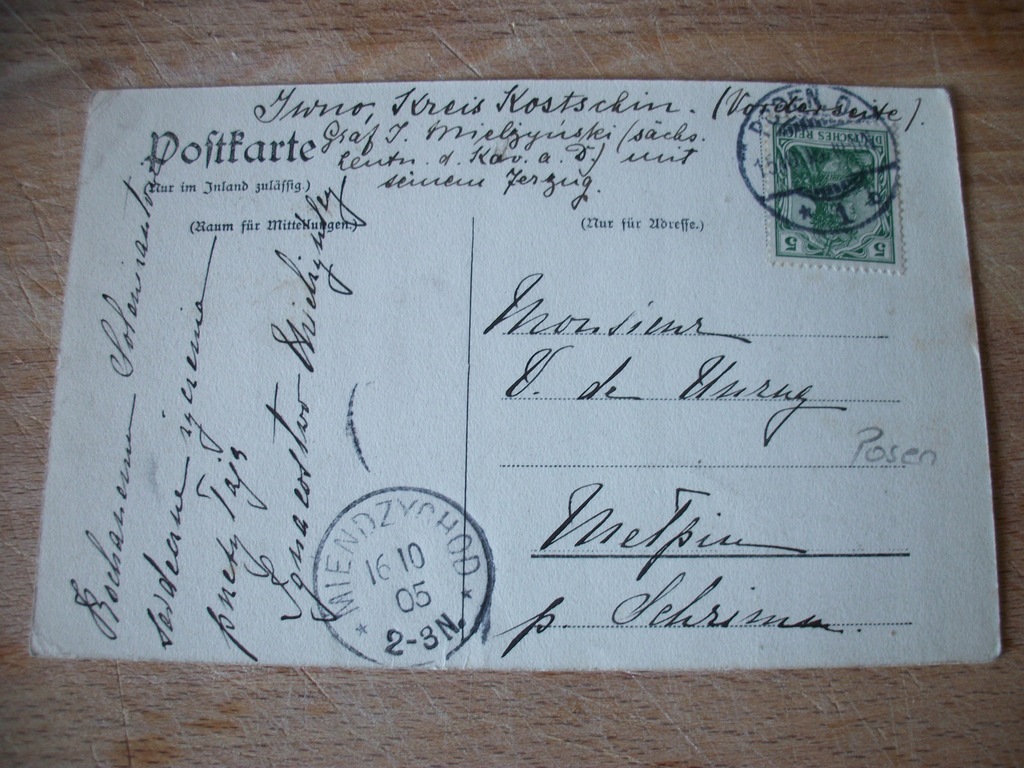 Iwno, Kreis Kostschin. (Vorderseite).
Graf I. Mielzyński (sächs.
Leutn. d. Kav. a. D.) mit
seinem Jerzug.
Postkarte
(Nur im Inland zulässig.)
(Raum für Mitteilungen.)
(Nur für Adresse.)
POSEN
1
DEUTSCHES REICH
5 5
Kochanemu
serdecznie
Ignacostwo Mielżyńscy
Monsieur
V. de Unrug
Posen
Melpin
p. Schrimm.
MIENDZYCHOD
16 10
05
2-3N.